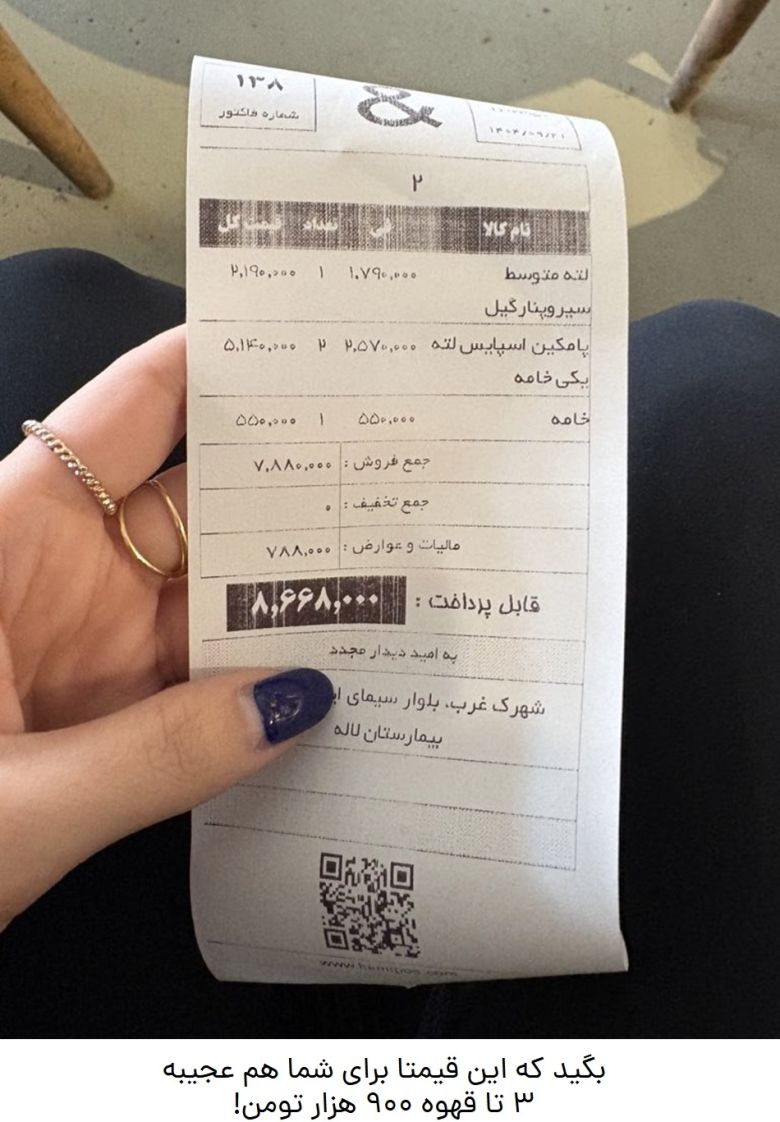 ۱۳۸
شماره فاکتور
&
۱۴۰۴/۰۹/۲۱
۲
نام کالا فی تعداد قیمت کل
لته متوسط ۱,۷۹۰,۰۰۰ ۱ ۲,۱۹۰,۰۰۰
سیروپنارگیل
پامکین اسپایس لته ۲,۵۷۰,۰۰۰ ۲ ۵,۱۴۰,۰۰۰
یکی خامه
خامه ۵۵۰,۰۰۰ ۱ ۵۵۰,۰۰۰
جمع فروش : ۷,۸۸۰,۰۰۰
جمع تخفیف : ۰
مالیات و عوارض : ۷۸۸,۰۰۰
قابل پرداخت : ۸,۶۶۸,۰۰۰
به امید دیدار مجدد
شهرک غرب، بلوار سیمای
بیمارستان لاله
بگید که این قیمتا برای شما هم عجیبه
۳ تا قهوه ۹۰۰ هزار تومن!